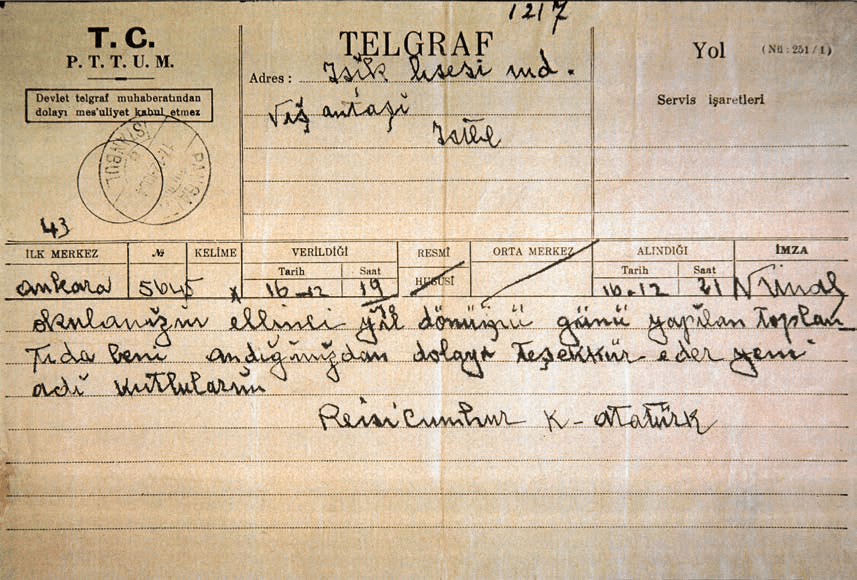 1217
T. C.
P. T. T. U. M.
Devlet telgraf muhaberatından
dolayı mes'uliyet kabul etmez
İSTANBUL
43
TELGRAF
Adres : Işik lisesi md.
Niş antaşi
Istbl
Yol (Nü : 251/1)
Servis işaretleri
İLK MERKEZ № KELİME VERİLDİĞİ RESMİ ORTA MERKEZ ALINDIĞI İMZA
Tarih Saat HUSUSİ Tarih Saat
ankara 5645 16-12 19 16-12 21
okulanızın ellinci yıl dönümü günü yapılan toplan
tıda beni andığınızdan dolayı teşekkür eder yeni
adı kutlularım
Reisicumhur K- atatürk